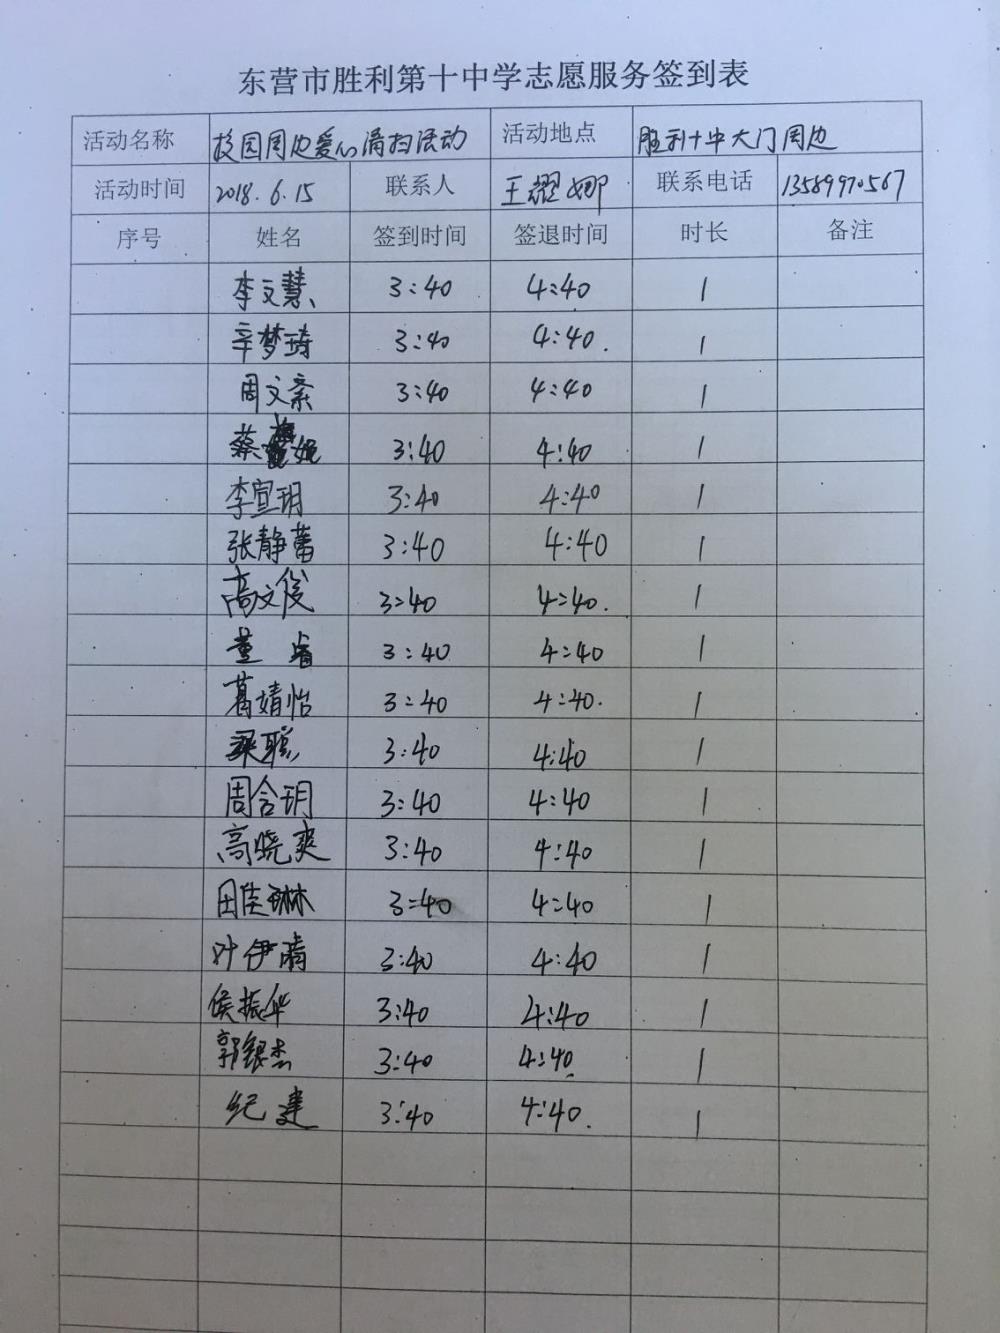 东营市胜利第十中学志愿服务签到表
活动名称 校园周边爱心清扫活动 活动地点 胜利十中大门周边
活动时间 2018.6.15 联系人 王耀娜 联系电话 13589970567
序号 姓名 签到时间 签退时间 时长 备注
李文慧 3:40 4:40 1
辛梦琦 3:40 4:40. 1
周文 3:40 4:40 1
蔡 3:40 4:40 1
李宣玥 3:40 4:40 1
张静蕾 3:40 4:40 1
高文俊 3:40 4:40. 1
董 睿 3:40 4:40 1
葛婧怡 3:40 4:40. 1
梁聪 3:40 4:40 1
周含玥 3:40 4:40 1
高晓爽 3:40 4:40 1
田佳琳 3:40 4:40 1
叶伊晴 3:40 4:40 1
侯振华 3:40 4:40 1
郭银杰 3:40 4:40. 1
纪建 3:40 4:40. 1